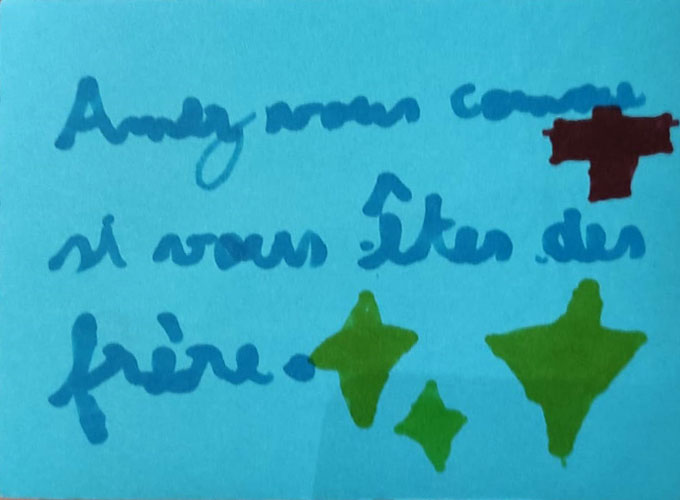 Amez vous comme
si vous êtes des
frère.